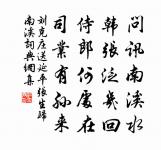 问讯南溪水
韩张泛几回
侍郎何处在
司业有孙来
刘克庄送延平张生归
南溪词典图集